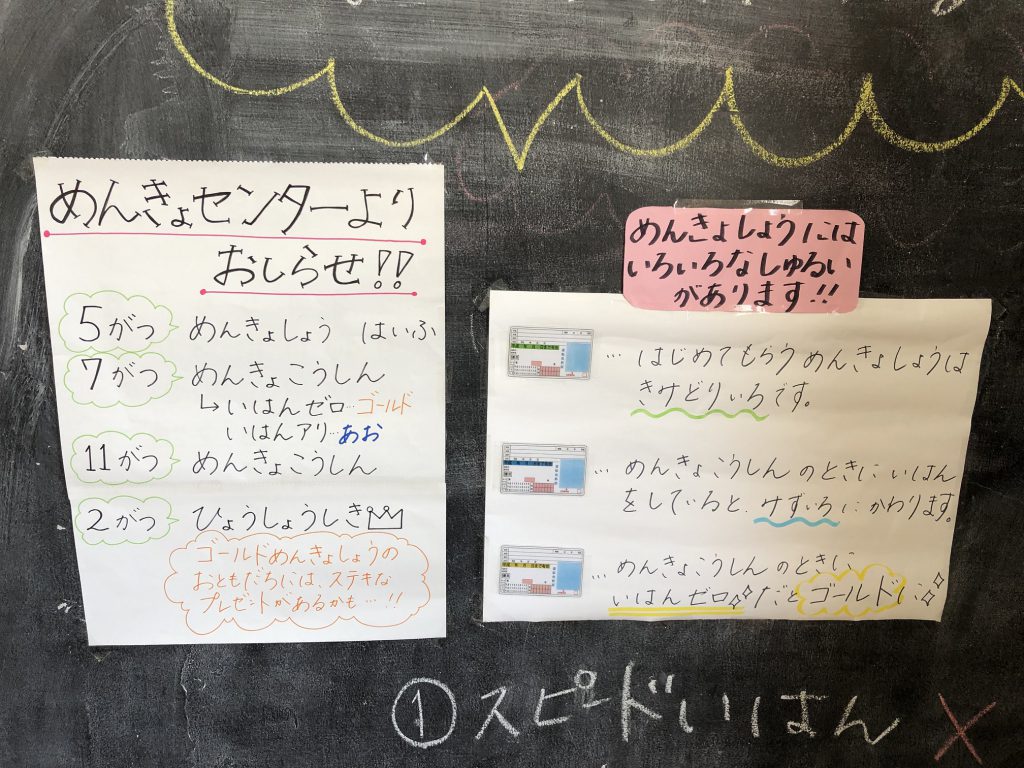 めんきょセンターより
おしらせ!!
5がつ めんきょしょう はいふ
7がつ めんきょこうしん
↳いはんゼロ…ゴールド
いはんアリ…あお
11がつ めんきょこうしん
2がつ ひょうしょうしき
ゴールドめんきょしょうの
おともだちには、ステキな
プレゼントがあるかも…!!
めんきょしょうには
いろいろなしゅるい
があります!!
… はじめてもらうめんきょしょうは
きみどりいろです。
… めんきょこうしんのときにいはん
をしていると、みずいろにかわります。
… めんきょこうしんのときに
いはんゼロだとゴールドに
①スピードいはん ×